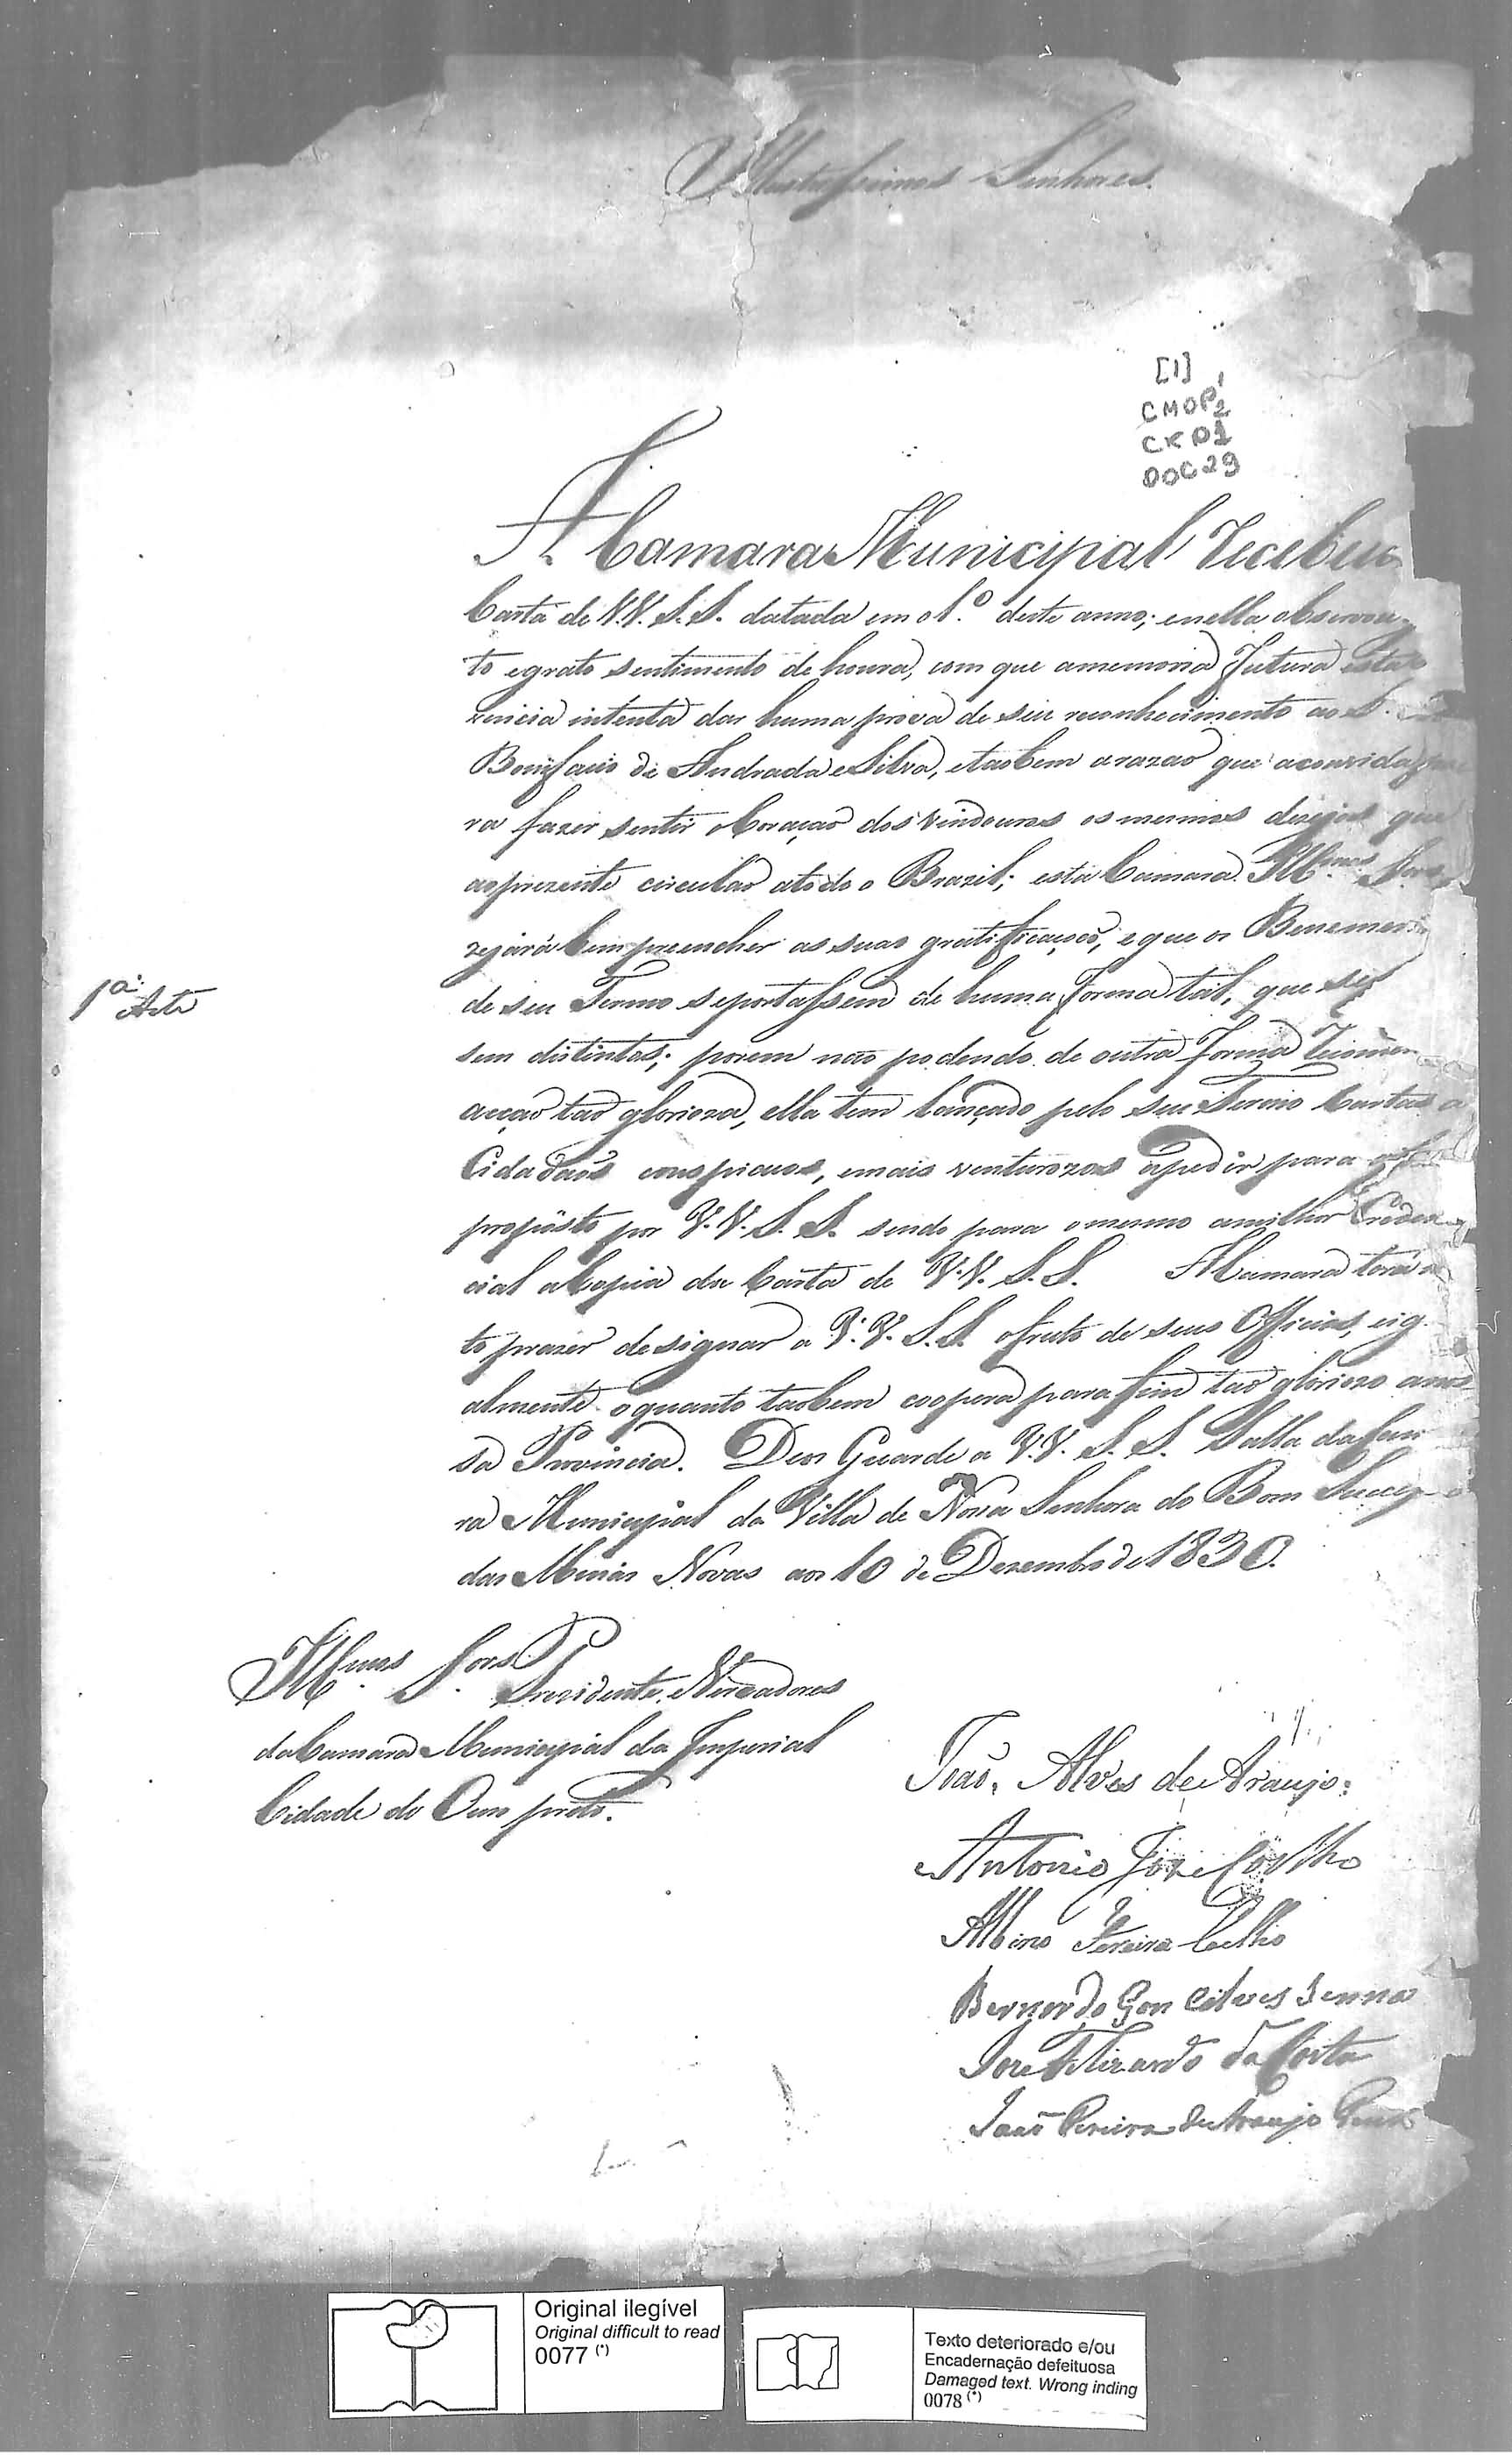 Illustrissimos Senhores.
[1]
CMOP
CX 01
DOC 29
A Camara Municipal Recebeu
Carta de V.V. S.S. datada em o 1.º deste anno; enella observou
to egrato sentimento de honra, com que amemoria futura esta
rencia intenta dar huma prova de seu reconhecimento ao S.
Bonifacio de Andrada eSilva, etaobem arazaõ que aconvida pa
ra fazer sentir oCoraçaõ dos Vindouros os mesmos dezejos que
aoprezente circulaõ atodo o Brazil; esta Camara Ill.mos Snres
zejará bem preencher as suas gratificaçoẽs, eque os Benemeri
de seu Termo seportassem de huma forma tal, que se
sem distintos; porem naõ podendo de outra forma
acçaõ taõ glorioza, ella tem lançado pelo seu Termo Cartas a
Cidadaõs conspicuos, emais venturozos apedir para
propósto por V.V. S.S. sendo para omesmo amilhor Creden
cial aCopia da Carta de V.V. S.S. ACamara terá
to prazer designar a V.V. S.S. ofruto de seus Officios, eig
almente oquanto taobem coopera para fim taõ gloriozo anos
sa Provincia. Deos Guarde a V.V. S.S. Salla da Cam
ra Municipal da Villa de Nossa Senhora do Bom Succes
das Minas Novas aos 10 de Dezembro de 1830.
1.ª
Ill.mos S.ores Prezidente, eVereadores
daCamara Municipal da Imperial
Cidade do Ouro preto.
Joaõ Alves de Araujo
Antonio Joze Coelho
Albino Pereira Coelho
Bernardo Gon calves Senna
Joze da Costa
Joaõ Pereira de Araujo
Original ilegível
Original difficult to read
0077 (*)
Texto deteriorado e/ou
Encadernação defeituosa
Damaged text. Wrong inding
0078 (*)